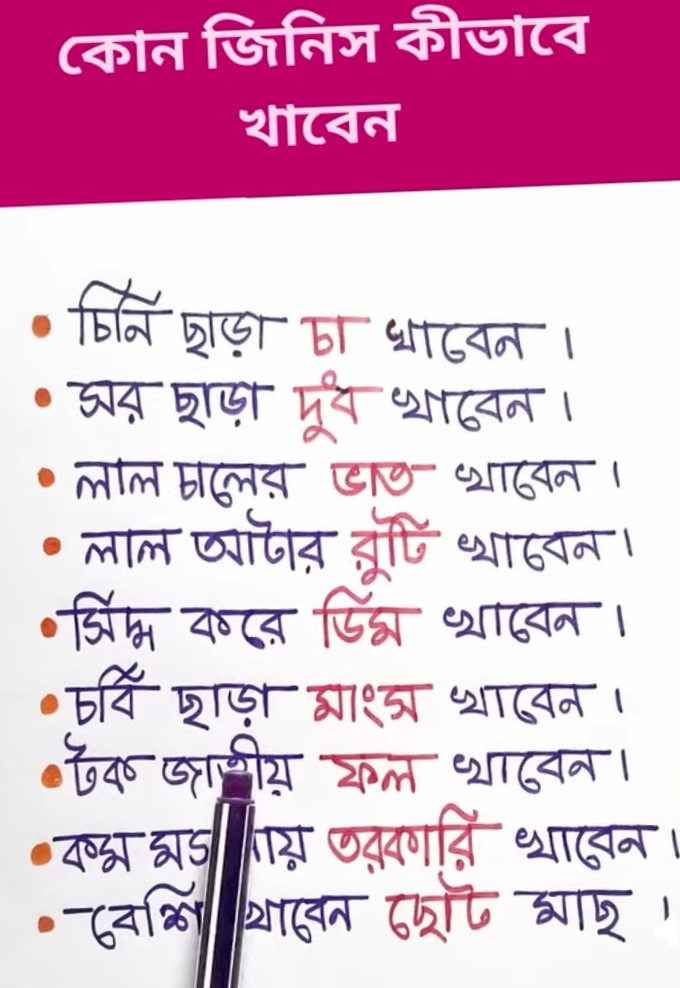 কোন জিনিস কীভাবে
খাবেন
• চিনি ছাড়া চা খাবেন ।
• সর ছাড়া দুধ খাবেন ।
• লাল চালের ভাত খাবেন ।
• লাল আটার রুটি খাবেন ।
• সিদ্ধ করে ডিম খাবেন ।
• চর্বি ছাড়া মাংস খাবেন ।
• টক জাতীয় ফল খাবেন ।
• কম তরকারি খাবেন ।
• বেশি খাবেন ছোট মাছ ।